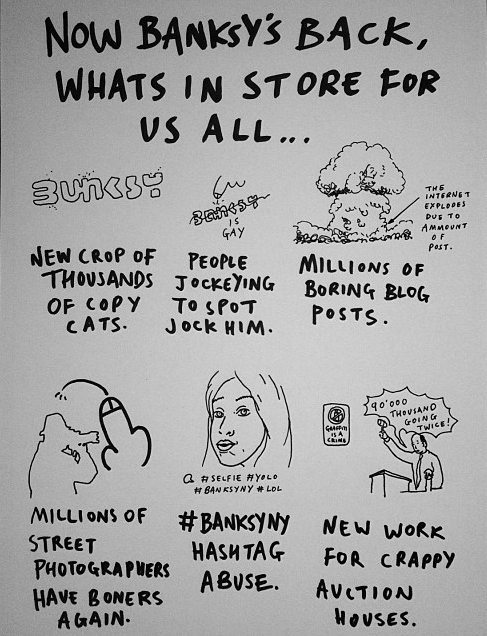 NOW BANKSY'S BACK,
WHATS IN STORE FOR
US ALL...
BUNKSY
BANKSY
IS
GAY
THE
INTERNET
EXPLODES
DUE TO
AMMOUNT
OF
POST.
NEW CROP OF
THOUSANDS
OF COPY
CATS.
PEOPLE
JOCKEYING
TO SPOT
JOCK HIM.
MILLIONS OF
BORING BLOG
POSTS.
#SELFIE #YOLO
#BANKSYNY #LOL
GRAFFITI
IS A
CRIME
90'000
THOUSAND
GOING
TWICE!
MILLIONS OF
STREET
PHOTOGRAPHERS
HAVE BONERS
AGAIN.
#BANKSYNY
HASHTAG
ABUSE.
NEW WORK
FOR CRAPPY
AUCTION
HOUSES.